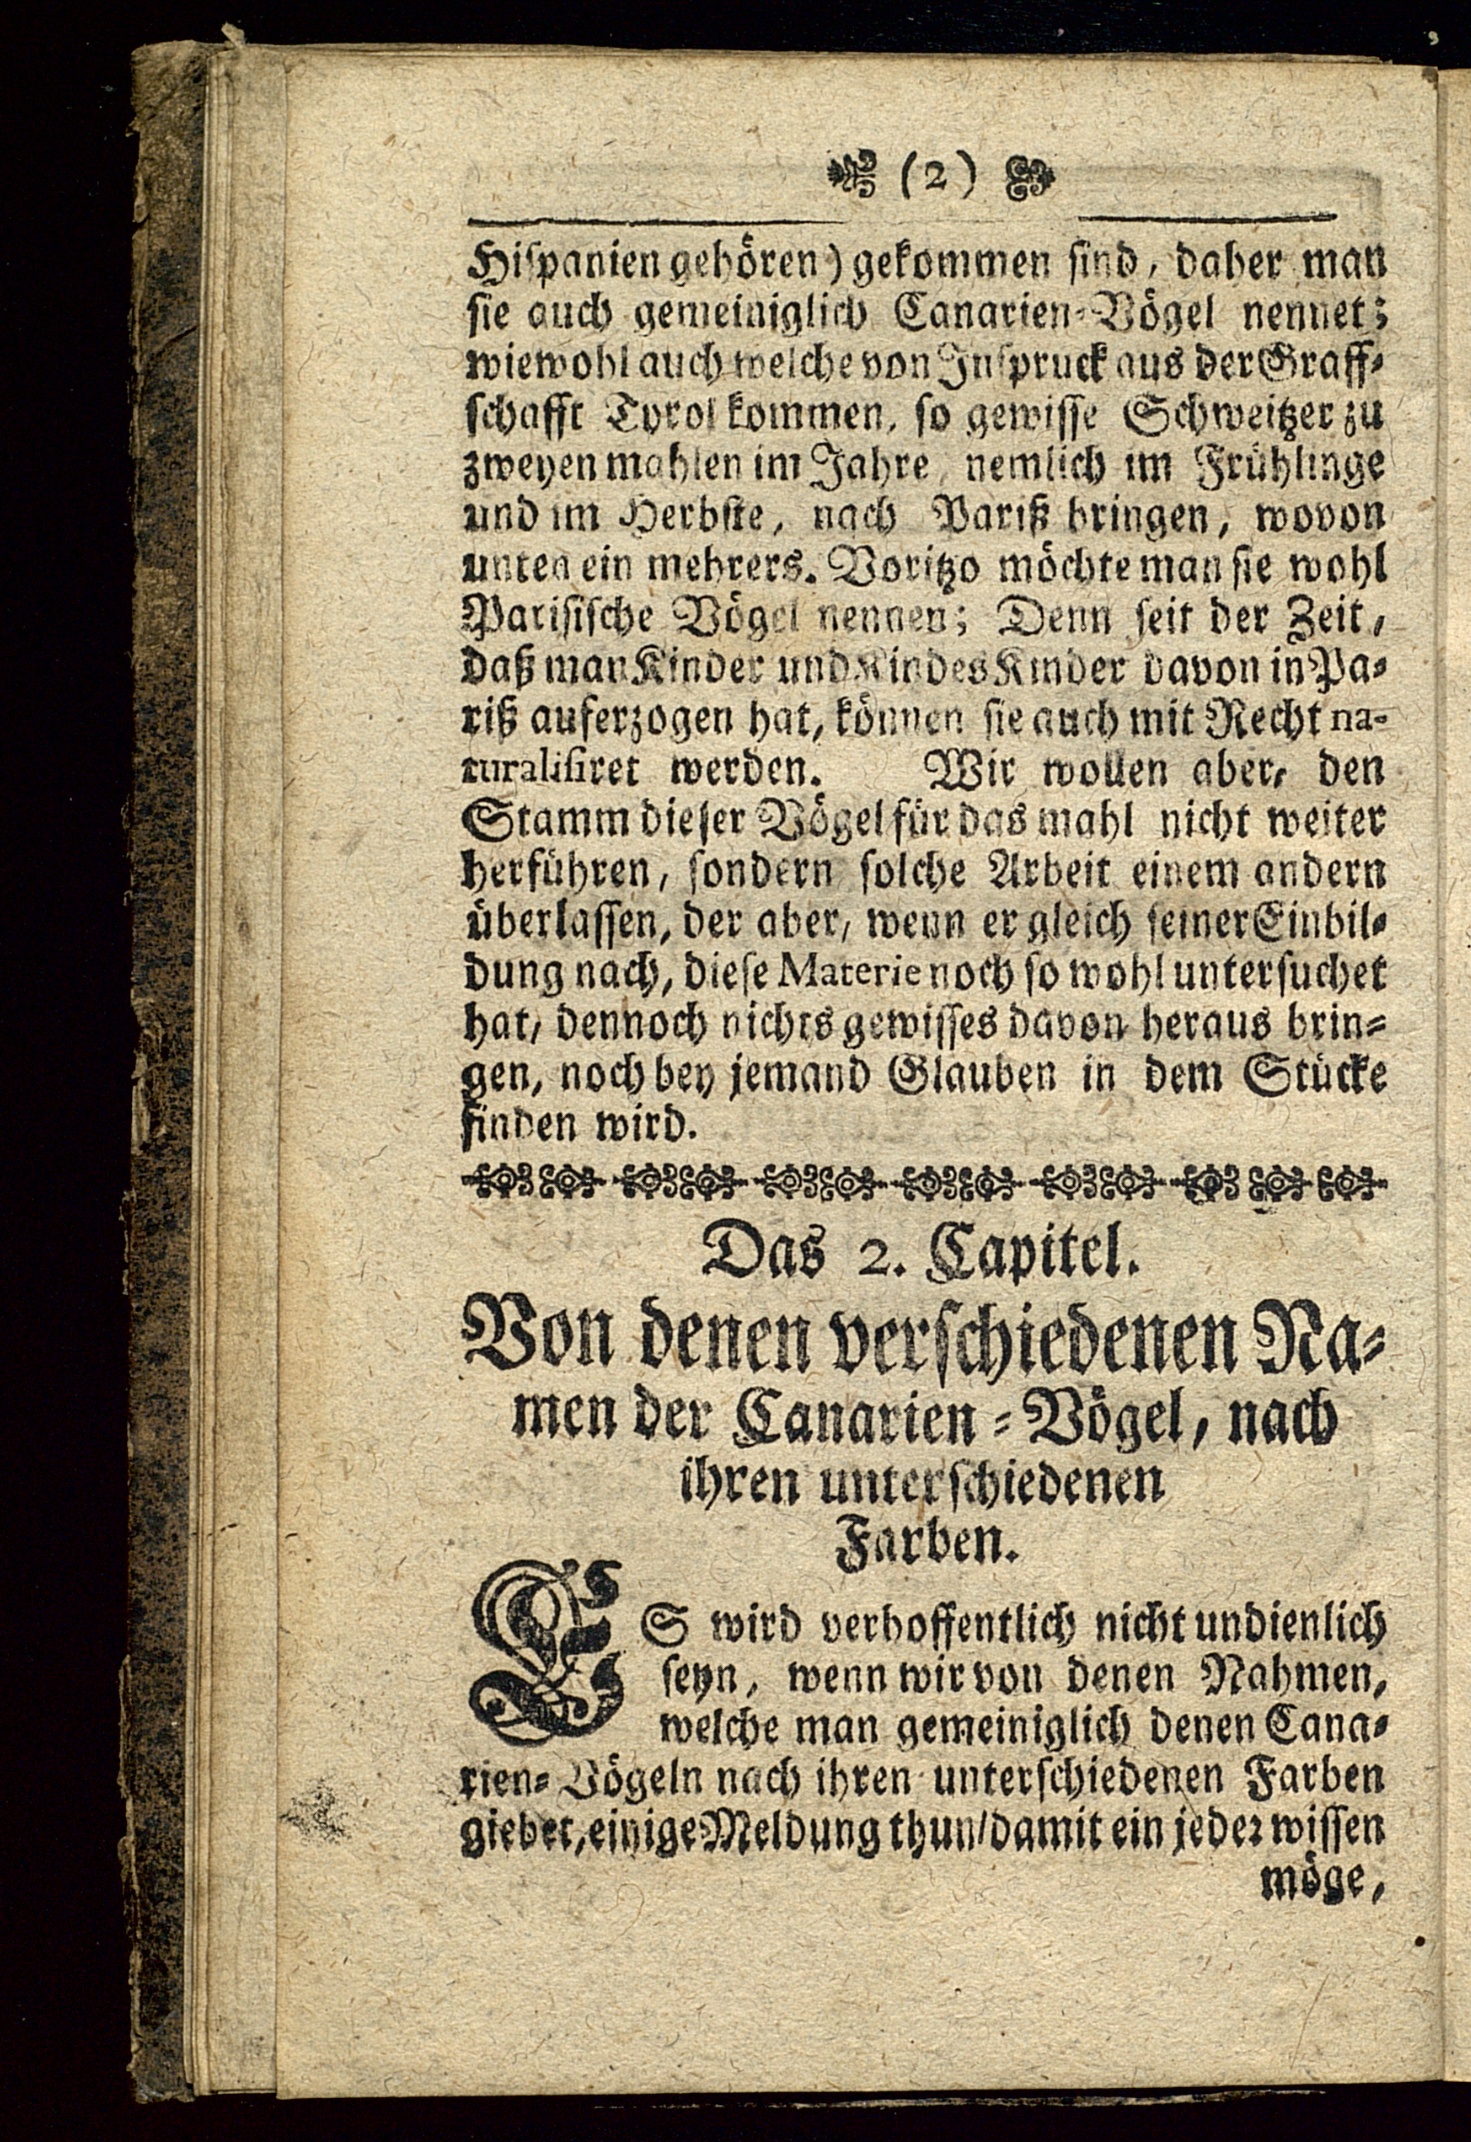 (2)
Hiſpanien gehören) gekommen ſind, daher man
ſie auch gemeiniglich Canarien-Vögel nennet;
wiewohl auch welche von Inſpruck aus der Graff-
ſchafft Tyrol kommen, ſo gewiſſe Schweitzer zu
zweyen mahlen im Jahre, nemlich im Frühlinge
und im Herbſte, nach Pariß bringen, wovon
unten ein mehrers. Voritzo möchte man ſie wohl
Pariſiſche Vögel nennen; Denn ſeit der Zeit,
daß man Kinder und Kindes Kinder davon in Pa-
riß auferzogen hat, können ſie auch mit Recht na-
turaliſiret werden. Wir wollen aber, den
Stamm dieſer Vögel für das mahl nicht weiter
herführen, ſondern ſolche Arbeit einem andern
überlaſſen, der aber, wenn er gleich ſeiner Einbil-
dung nach, dieſe Materie noch ſo wohl unterſuchet
hat, dennoch nichts gewiſſes davon heraus brin-
gen, noch bey jemand Glauben in dem Stücke
finden wird.
Das 2. Capitel.
Von denen verſchiedenen Na-
men der Canarien-Vögel, nach
ihren unterſchiedenen
Farben.
ES wird verhoffentlich nicht undienlich
ſeyn, wenn wir von denen Nahmen,
welche man gemeiniglich denen Cana-
rien-Vögeln nach ihren unterſchiedenen Farben
giebet, einige Meldung thun/ damit ein jeder wiſſen
möge,